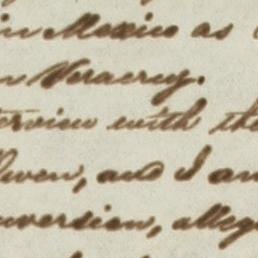 in Mexico as
n Veracruz.
terview with the
Owen, and I am
nversion, alleg